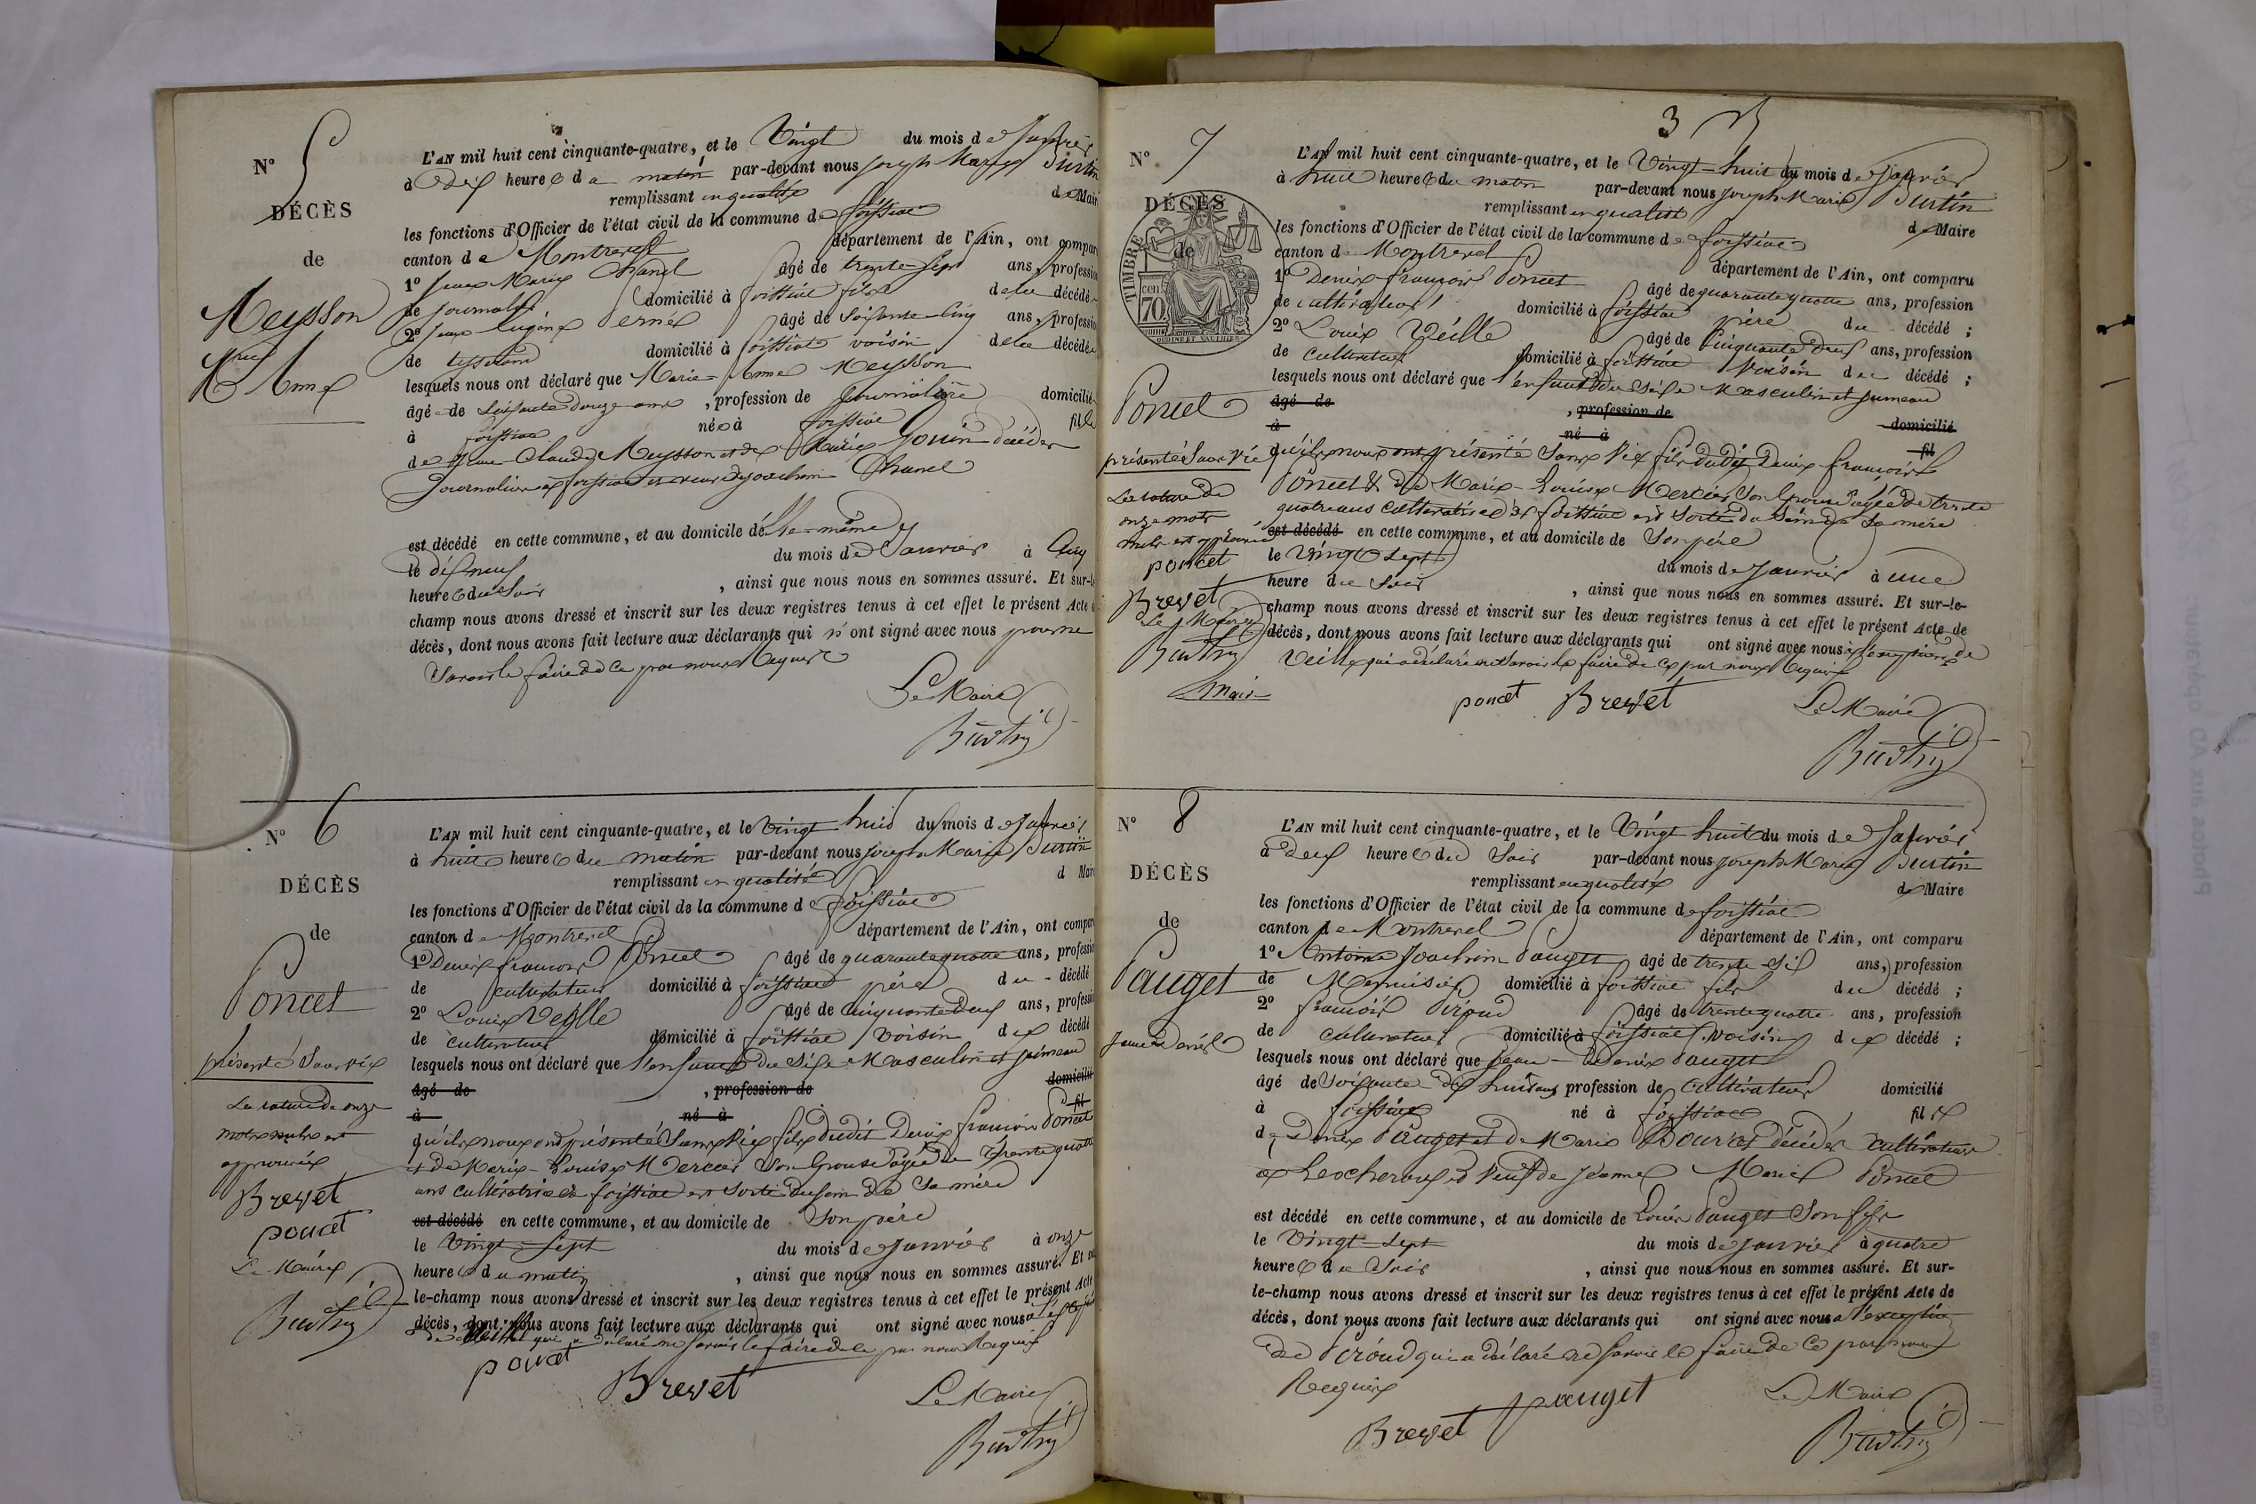 N° 5
DÉCÈS
de
Meysson
Anne
L'AN mil huit cent cinquante-quatre, et le Vingt du mois de Janvier
à dix heures du matin par-devant nous Joseph Marie Burtin
remplissant en qualité de Maire
les fonctions d'Officier de l'état civil de la commune de foissiat
canton de Montrevel département de l'Ain, ont compar
1° Jean Marie Chanel âgé de trente sept ans, professio
de journalier domicilié à foissiat fils de la décédée
2° Jean Eugène âgé de soixante-cinq ans, professio
de tisserand domicilié à foissiat voisin de la décédée
lesquels nous ont déclaré que Marie-Anne Meysson
âgée de soixante douze ans, profession de journalière domiciliée
à foissiat née à foissiat fille
de Jean Claude Meysson et de Marie Gouin décédés
journaliers à foissiat et veuve de Joachim Chanel
est décédé en cette commune, et au domicile d'elle-même
le dix neuf du mois de Janvier à cinq
heures du soir, ainsi que nous nous en sommes assuré. Et sur-le
champ nous avons dressé et inscrit sur les deux registres tenus à cet effet le présent Acte de
décès, dont nous avons fait lecture aux déclarants qui n'ont signé avec nous pour ne
savoir le faire de ce par nous requis
Le Maire
Burtin
N° 6
DÉCÈS
de
Poncet
présenté sans vie
La rature de onze
mots nuls est
approuvée
Brevet
poncet
Le Maire
Burtin
L'AN mil huit cent cinquante-quatre, et le Vingt huit du mois de Janvier
à huit heures du matin par-devant nous Joseph Marie Burtin
remplissant en qualité d Maire
les fonctions d'Officier de l'état civil de la commune de foissiat
canton de Montrevel département de l'Ain, ont compar
1° Denis françois Poncet âgé de quarante quatre ans, professio
de cultivateur domicilié à foissiat père du décédé
2° Louis Veille âgé de cinquante deux ans, professio
de cultivateur domicilié à foissiat voisin du décédé
lesquels nous ont déclaré que l'enfant du sexe masculin et jumeau
âgé de, profession de domicilié
à né à fil
qu'ils nous ont présenté sans vie fils dudit Denis françois Poncet
et de Marie-Louise Mercier son épouse âgée de trente quatre
ans cultivatrice à foissiat est sorti du sein de sa mère
est décédé en cette commune, et au domicile de son père
le Vingt-sept du mois de Janvier à onze
heures du matin, ainsi que nous nous en sommes assuré. Et sur
le-champ nous avons dressé et inscrit sur les deux registres tenus à cet effet le présent Acte
décès, dont nous avons fait lecture aux déclarants qui ont signé avec nous à l'exception
de Veille qui a déclaré ne savoir le faire de ce par nous requis
poncet
Brevet
Le Maire
Burtin
3
N° 7
DÉCÈS
de
TIMBRE
70 cen
Poncet
présenté sans vie
La rature de
onze mots
nuls est approuvée
poncet
Brevet
Le Maire
Burtin
Maire
L'AN mil huit cent cinquante-quatre, et le Vingt-huit du mois de Janvier
à huit heures du matin par-devant nous Joseph Marie Burtin
remplissant en qualité de Maire
les fonctions d'Officier de l'état civil de la commune de foissiat
canton de Montrevel département de l'Ain, ont comparu
1° Denis françois Poncet âgé de quarante quatre ans, profession
de cultivateur domicilié à foissiat père du décédé ;
2° Louis Veille âgé de cinquante deux ans, profession
de cultivateur domicilié à foissiat voisin du décédé ;
lesquels nous ont déclaré que l'enfant du sexe masculin et jumeau
âgé de, profession de domicilié
à né à fil
qu'ils nous ont présenté sans vie fils dudit Denis françois
Poncet & de Marie-Louise Mercier son épouse âgée de trente
quatre ans cultivatrice à foissiat est sorti du sein de sa mère
est décédé en cette commune, et au domicile de son père
le Vingt sept du mois de Janvier à une
heure du soir, ainsi que nous nous en sommes assuré. Et sur-le-
champ nous avons dressé et inscrit sur les deux registres tenus à cet effet le présent Acte de
décès, dont nous avons fait lecture aux déclarants qui ont signé avec nous à l'exception de
Veille qui a déclaré ne savoir le faire de ce par nous requis
poncet Brevet
Le Maire
Burtin
N° 8
DÉCÈS
de
Pauget
Jean Denis
L'AN mil huit cent cinquante-quatre, et le Vingt huit du mois de Janvier
à deux heures du soir par-devant nous Joseph Marie Burtin
remplissant en qualité de Maire
les fonctions d'Officier de l'état civil de la commune de foissiat
canton de Montrevel département de l'Ain, ont comparu
1° Antoine Joachim Pauget âgé de trente-six ans, profession
de Menuisier domicilié à foissiat fils du décédé ;
2° françois Piroud âgé de trente quatre ans, profession
de cultivateur domicilié à foissiat voisin du décédé ;
lesquels nous ont déclaré que Jean-Denis Pauget
âgé de soixante-dix huit ans, profession de cultivateur domicilié
à foissiat né à foissiat fils
de Denis Pauget et de Marie décédés cultivateurs
à Lescheroux et veuf de Jeanne Marie Poncet
est décédé en cette commune, et au domicile de Louis Pauget son fils
le Vingt-sept du mois de Janvier à quatre
heures du soir, ainsi que nous nous en sommes assuré. Et sur-
le-champ nous avons dressé et inscrit sur les deux registres tenus à cet effet le présent Acte de
décès, dont nous avons fait lecture aux déclarants qui ont signé avec nous à l'exception
de Piroud qui a déclaré ne savoir le faire de ce par nous
requis
Brevet pauget
Le Maire
Burtin